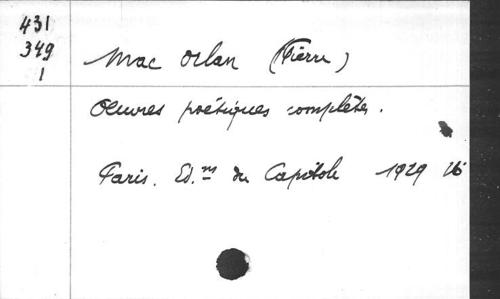 431
349
1
Mac Orlan (Pierre)
Oeuvres poétiques complètes.
Paris. Ed.ns du Capitole 1929 16